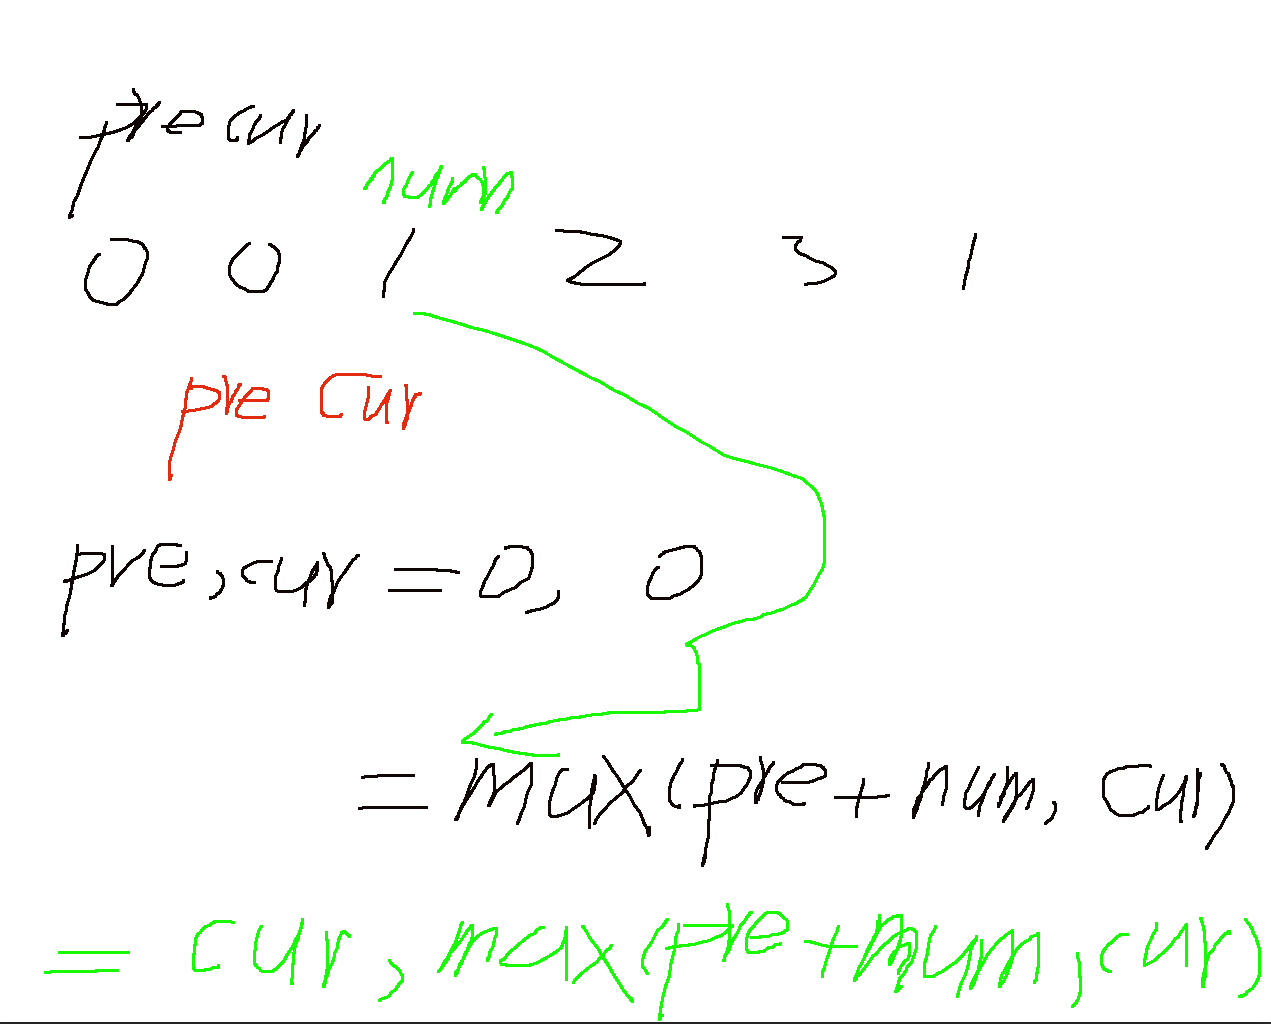 pre cur
num
0 0 1 2 3 1
pre cur
pre, cur = 0, 0
= max(pre + num, cur)
= cur, max(pre + num, cur)